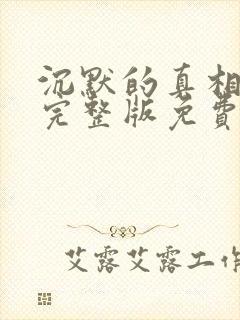 沉默的真相
完整版免费
艾露艾露工作